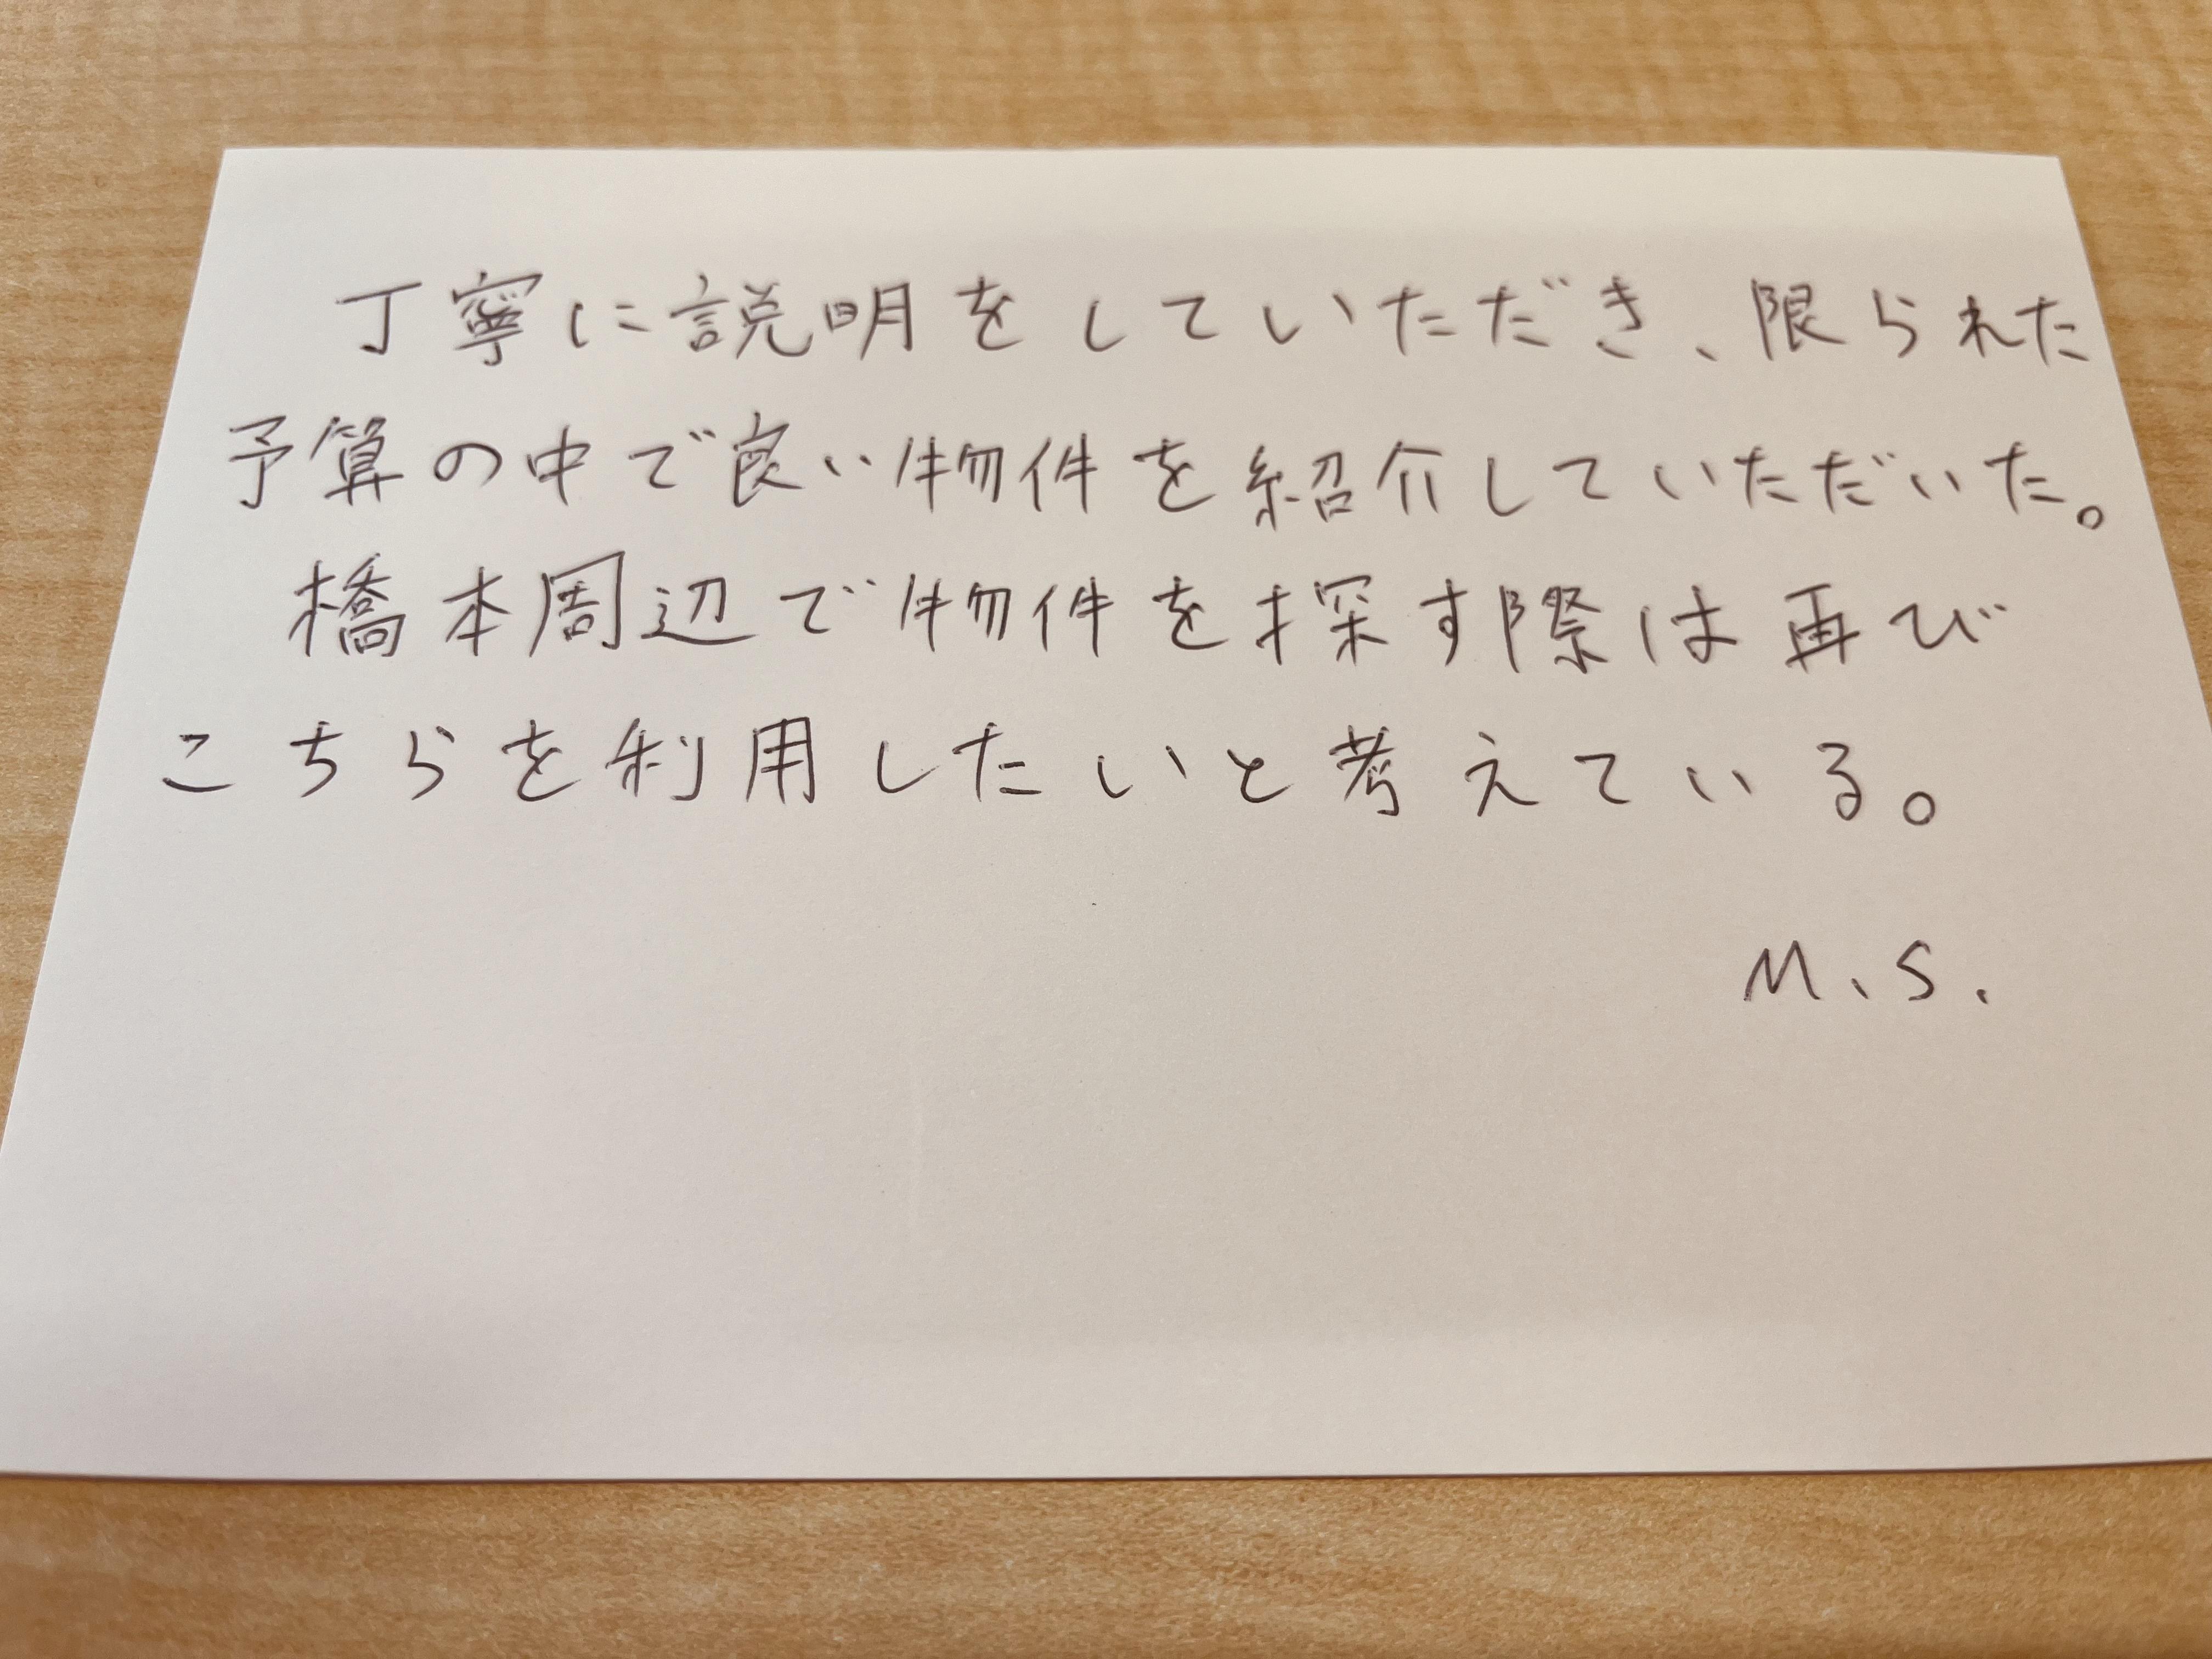 丁寧に説明をしていただき、限られた
予算の中で良い物件を紹介していただいた。
橋本周辺で物件を探す際は再び
こちらを利用したいと考えている。
M.S.